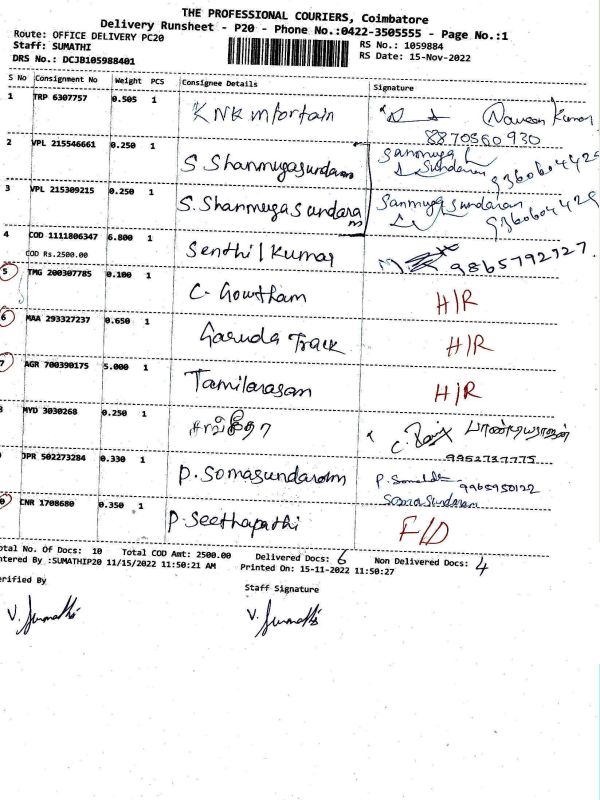 THE PROFESSIONAL COURIERS, Coimbatore
Delivery Runsheet - P20 - Phone No.:0422-3505555 - Page No.:1
Route: OFFICE DELIVERY PC20
RS No.: 1059884
Staff: SUMATHI
RS Date: 15-Nov-2022
DRS No.: DCJB105988401
S No Consignment No Weight PCS Consignee Details Signature
1 TRP 6307757 0.505 1 KNK Naveen Kumar
8870560930
2 VPL 215546661 0.250 1 S Shanmugasundaram Sanmuga Sundaram 9360604429
3 VPL 215309215 0.250 1 S. Shanmugasundaram Sanmuga sundaram 9360604429
4 COD 1111806347 6.800 1 Senthil Kumar 9865792727
COD Rs.2500.00
5 TMG 200307785 0.100 1 C. Gowtham H/R
6 MAA 293327237 0.650 1 Garuda Track H/R
7 AGR 700390175 5.000 1 Tamilarasan H/R
MYD 3030268 0.250 1 சங்கீதா பாண்டியராஜன்
DPR 502273284 0.330 1 P. Somasundaram
Somasundaram
CNR 1708680 0.350 1 P. Seethapathi F/D
otal No. Of Docs: 10 Total COD Amt: 2500.00 Delivered Docs: 6 Non Delivered Docs: 4
ntered By :SUMATHIP20 11/15/2022 11:50:21 AM Printed On: 15-11-2022 11:50:27
erified By Staff Signature
V. Sumathi V. Sumathi